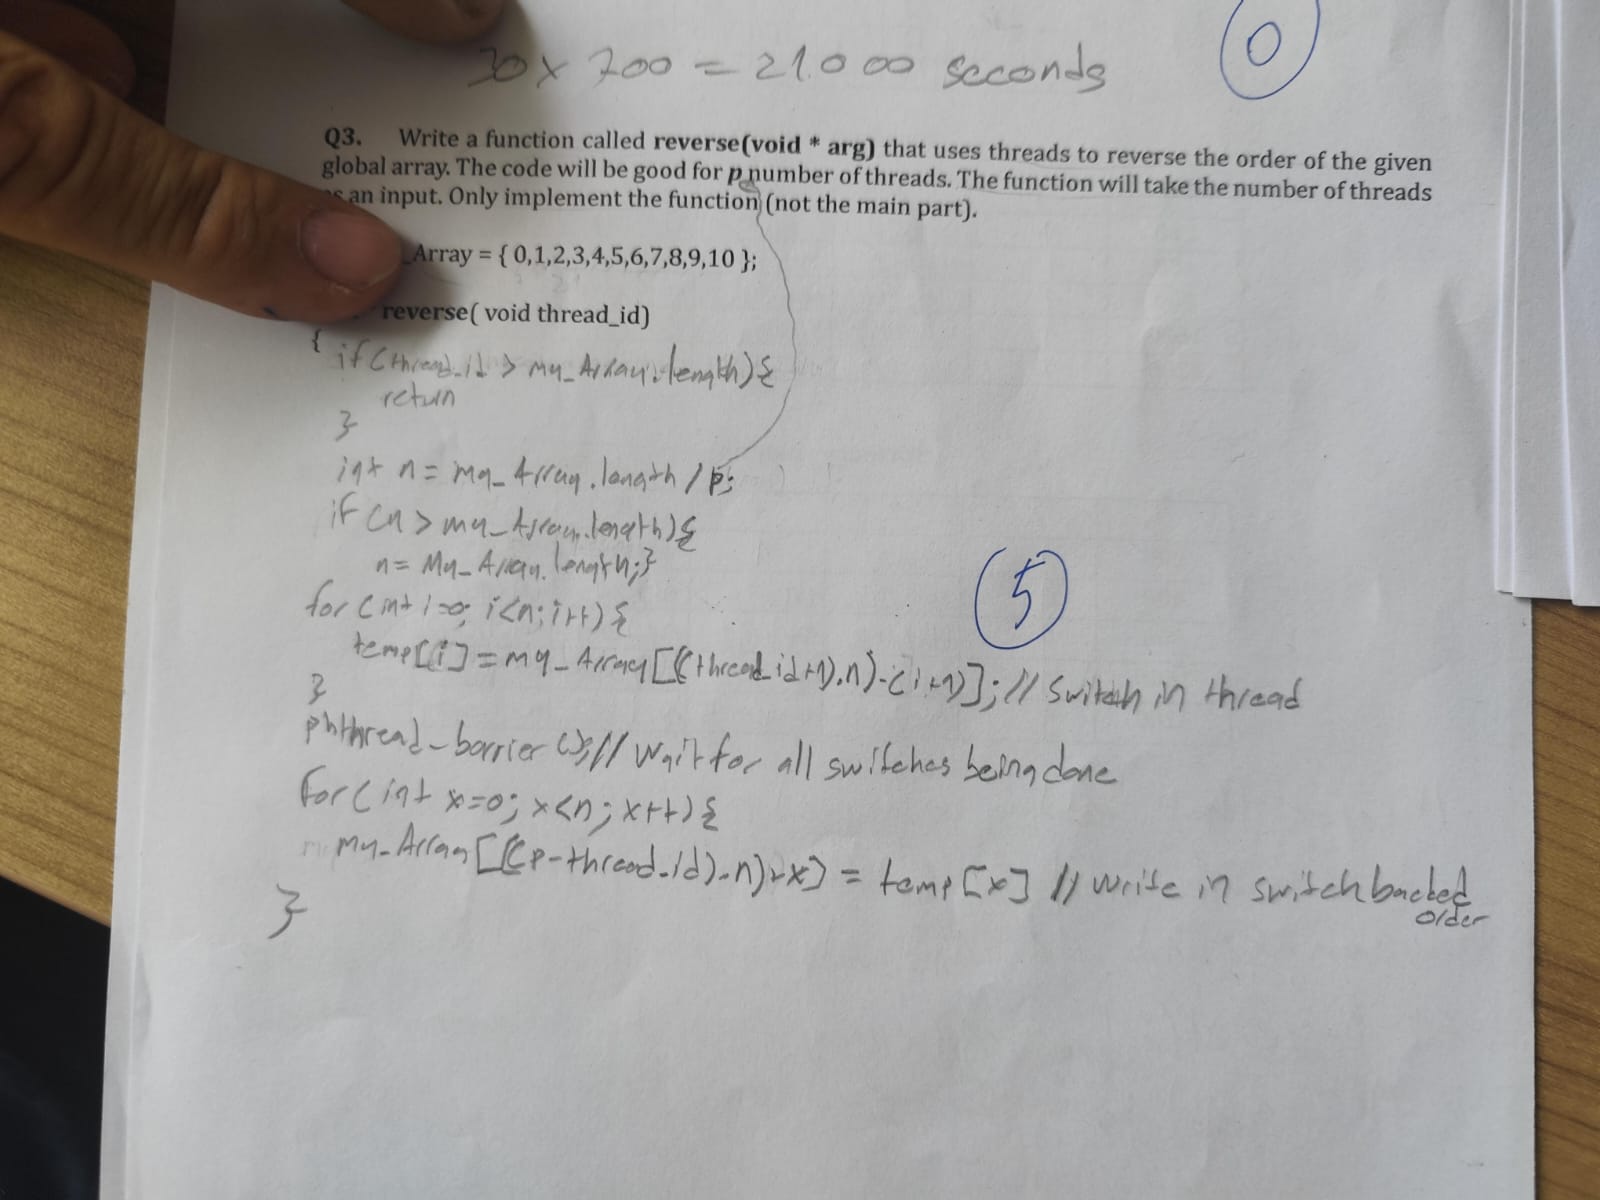 30 x 700 = 21.000 seconds
0
Q3. Write a function called reverse(void * arg) that uses threads to reverse the order of the given
global array. The code will be good for p number of threads. The function will take the number of threads
an input. Only implement the function (not the main part).
_Array = { 0,1,2,3,4,5,6,7,8,9,10 };
reverse( void thread_id)
{
if (thread_id > my_Array.length) {
return
}
int n = my_Array.length / p;
if (n > my_Array.length) {
n = My_Array.length; }
5
for (int i=0; i<n; i++) {
temp[i] = my_Array[((thread_id+1).n)-(i+1)]; // Switch in thread
}
phthread_barrier(); // Wait for all switches being done
For (int x=0; x<n; x++) {
my_Array[((p-thread_id).n)+x] = temp[x] // Write in switch backed
order
}